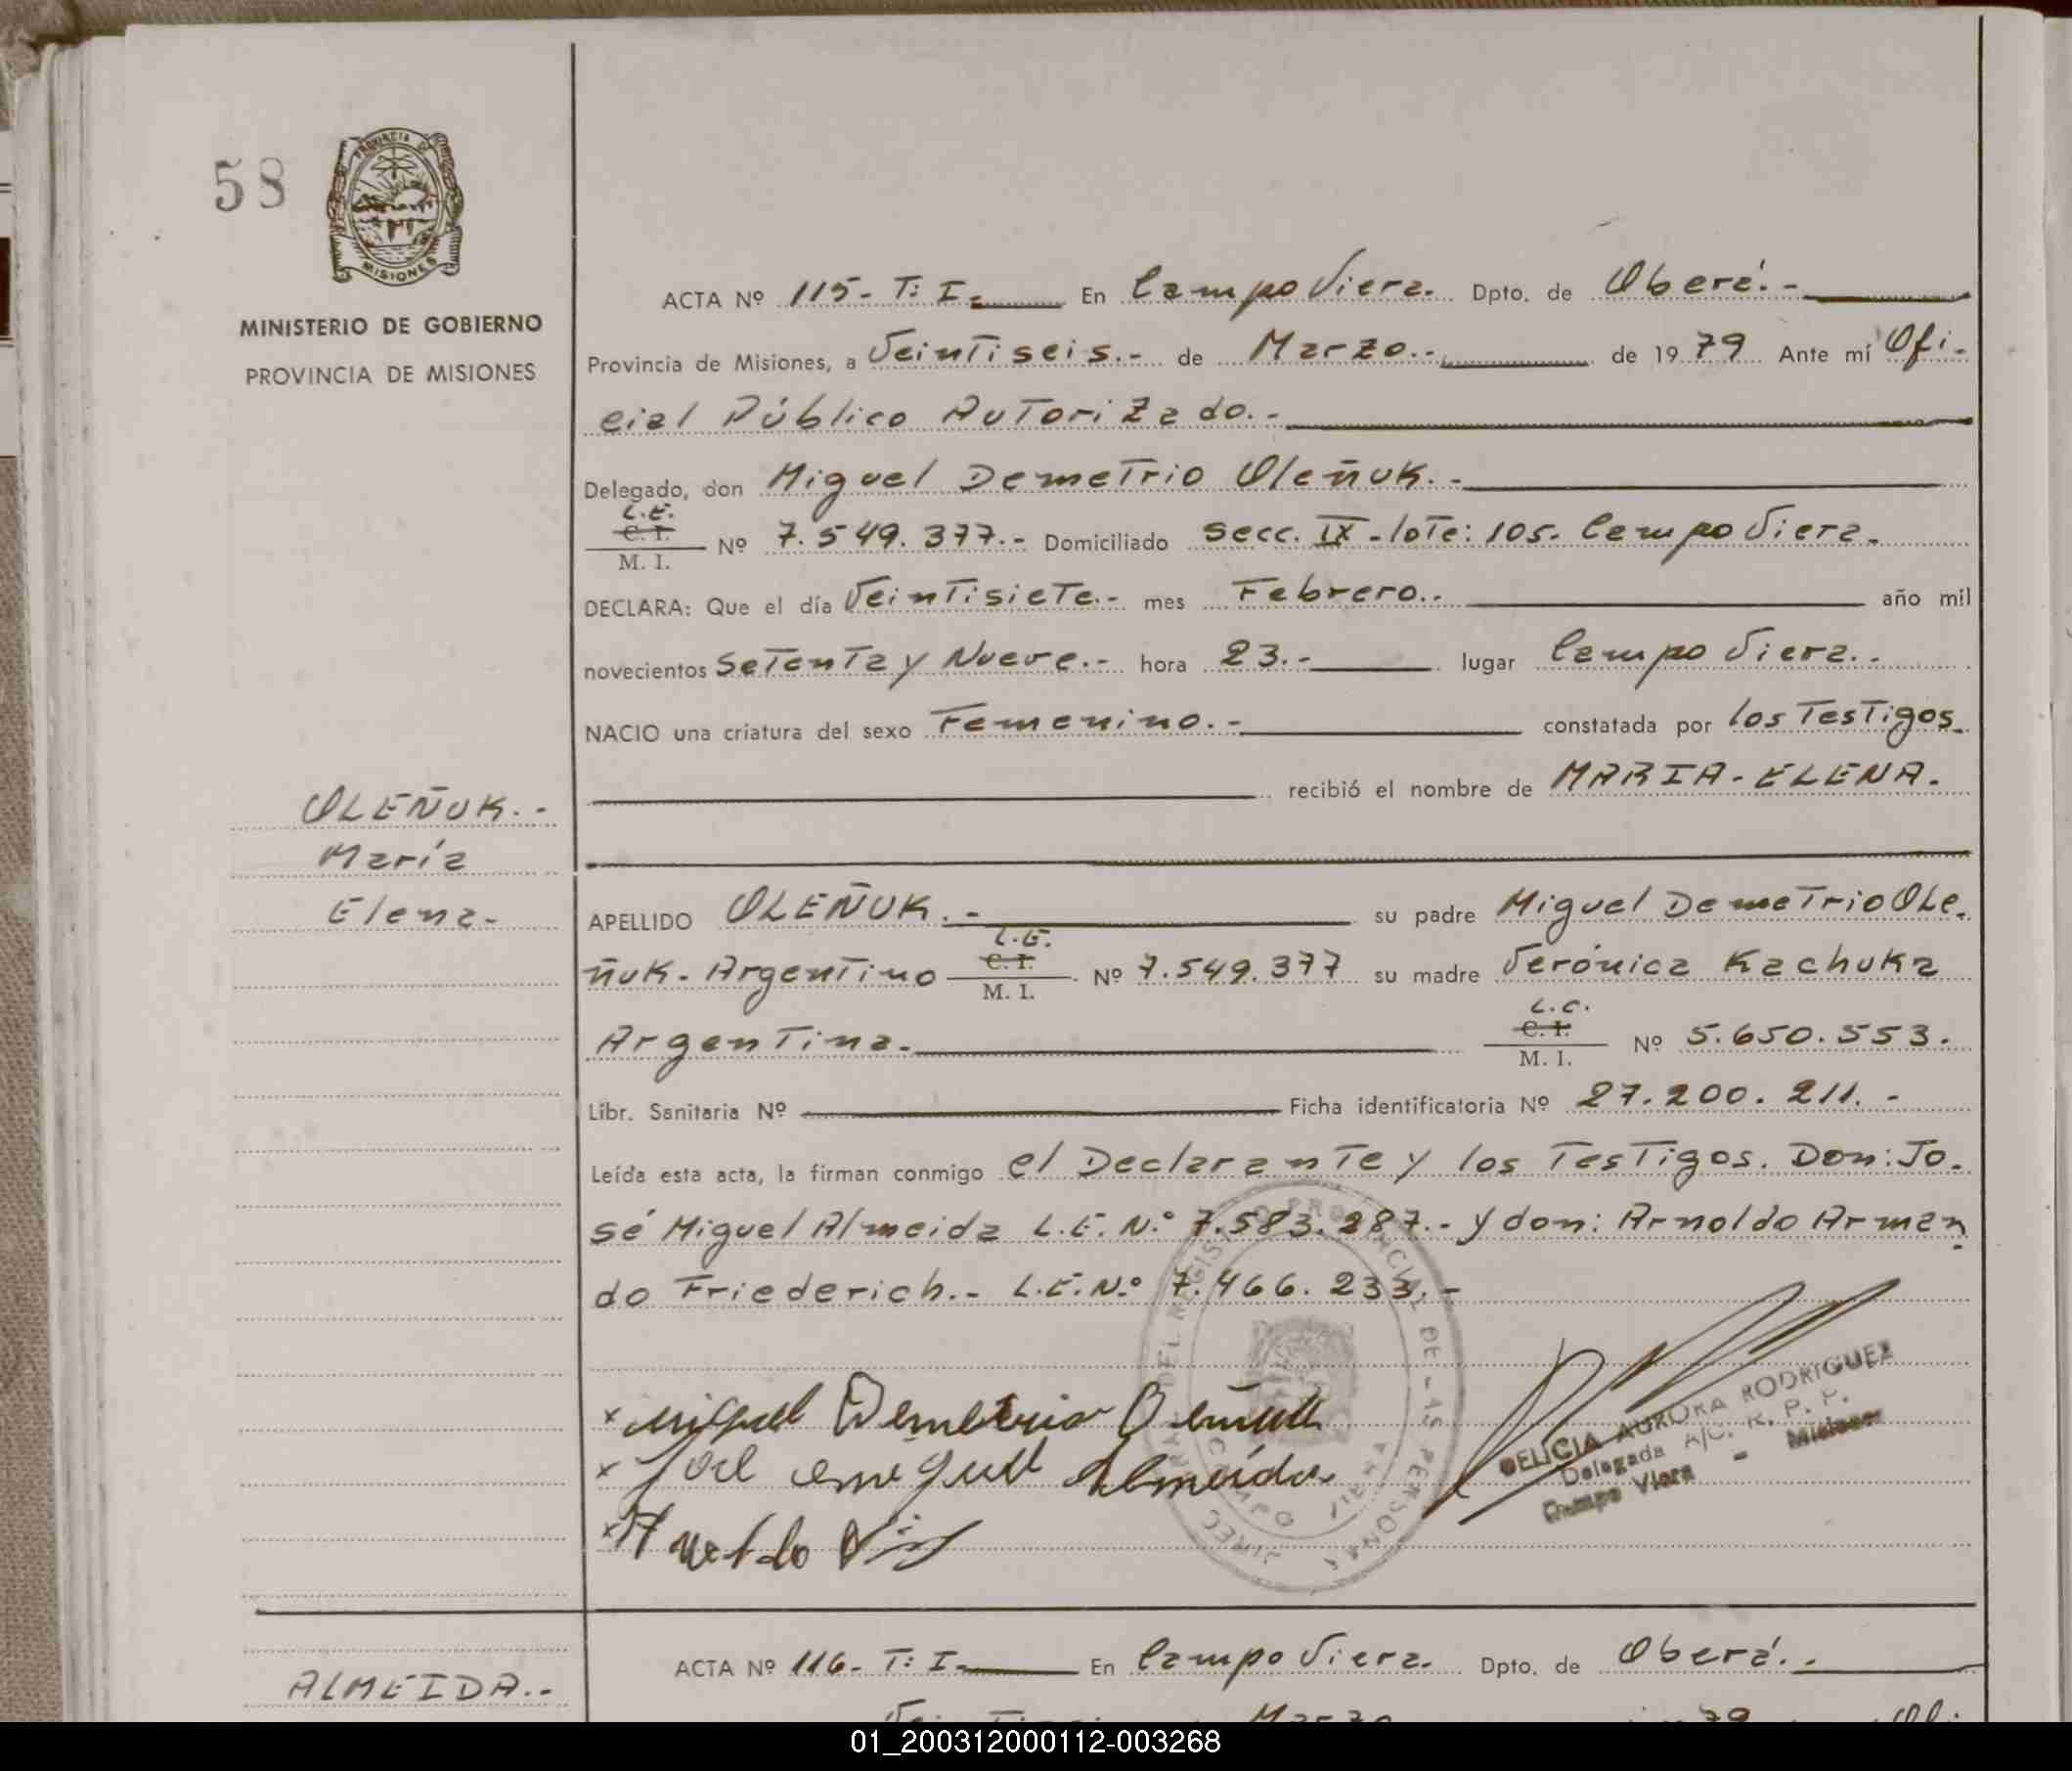 58
PROVINCIA DE
MISIONES
MINISTERIO DE GOBIERNO
PROVINCIA DE MISIONES
ACTA Nº 115- T: I- En Campo Viera. Dpto. de Oberá.-
Provincia de Misiones, a Veintiseis.- de Marzo.- de 1979 Ante mí Ofi-
cial Público Autorizado.-
Delegado, don Miguel Demetrio Oleñuk.-
L.E.
C. I.
M. I. Nº 7.549.377.- Domiciliado Secc. IX - lote: 105. Campo Viera.
DECLARA: Que el día Veintisiete.- mes Febrero.. año mil
novecientos Setenta y Nueve.- hora 23.- lugar Campo Viera..
NACIO una criatura del sexo Femenino.- constatada por los Testigos.
recibió el nombre de MARIA-ELENA.
OLEÑUK.-
María
Elena-
APELLIDO OLEÑUK.- su padre Miguel Demetrio Ole-
L.E.
ñuk- Argentino C. I. M. I. Nº 7.549.377 su madre Verónica Kachuka
L.C.
Argentina. C. I. M. I. Nº 5.650.553.
Libr. Sanitaria Nº Ficha identificatoria Nº 27.200.211.-
Leída esta acta, la firman conmigo el Declarante y los Testigos. Don: Jo-
sé Miguel Almeida L.E. N.º 7.583.287.- y don: Arnoldo Arman
do Friederich.- L.E.N.º 7.466.233.-
x Miguel Demetrio Oleñuk
x José Miguel Almeida
x Arnoldo
DELICIA AURORA RODRIGUEZ
Delegada A/C. R. P. P.
Campo Viera - Misiones
DEL REGISTRO PROVINCIAL DE LAS PERSONAS
CAMPO VIERA
ACTA Nº 116- T: I- En Campo Viera. Dpto. de Oberá..
ALMEIDA.-
Marzo 79
01_200312000112-003268